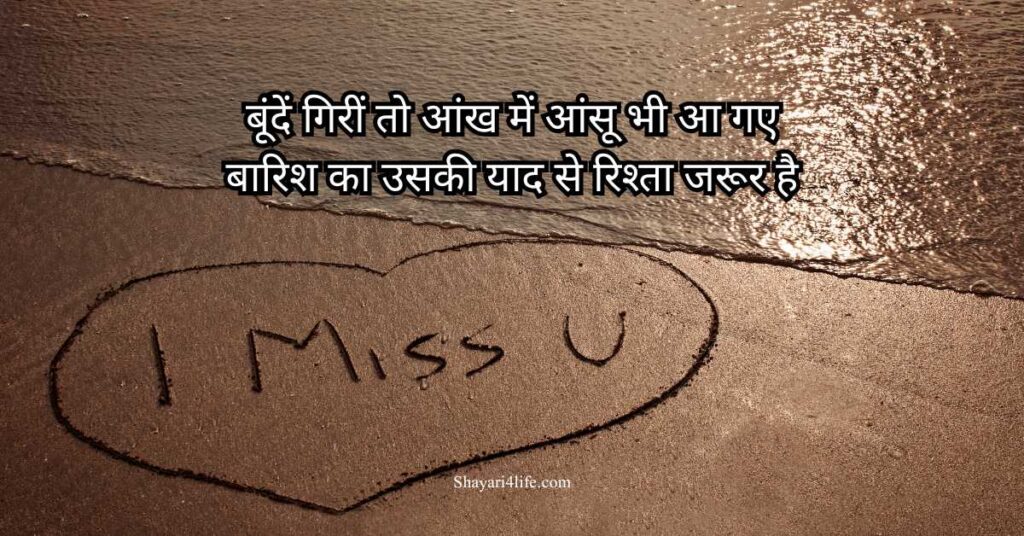 बूंदें गिरीं तो आंख में आंसू भी आ गए
बारिश का उसकी याद से रिश्ता जरूर है
I Miss U
Shayari4life.com